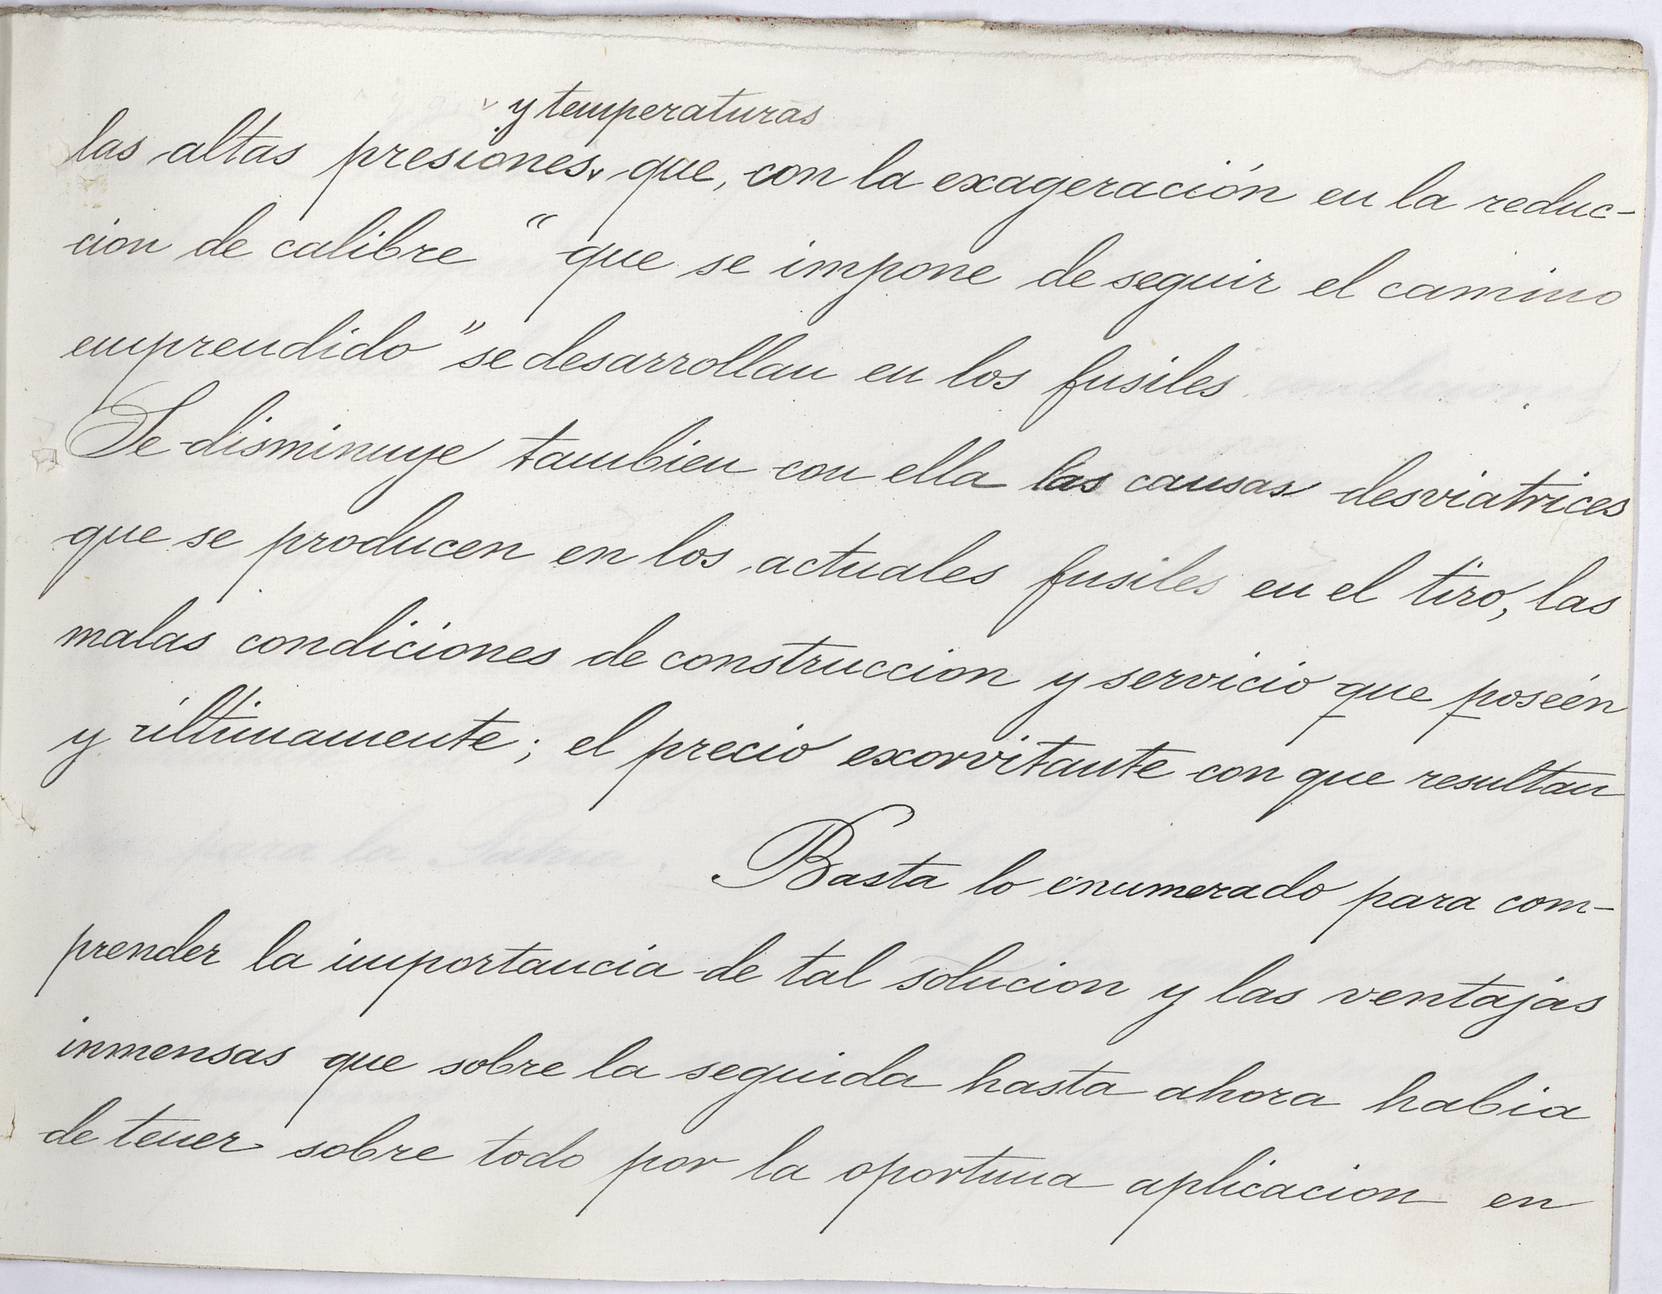 y temperaturas
las altas presiones, que, con la exageración en la reduc-
cion de calibre “ que se impone de seguir el camino
emprendido ” se desarrollan en los fusiles.
Se disminuye tambien con ella las causas desviatrices
que se producen en los actuales fusiles en el tiro, las
malas condiciones de construccion y servicio que poseén
y últimamente; el precio exorvitante con que resultan
Basta lo enumerado para com-
prender la importancia de tal solucion y las ventajas
inmensas que sobre la seguida hasta ahora habia
de tener sobre todo por la oportuna aplicacion en